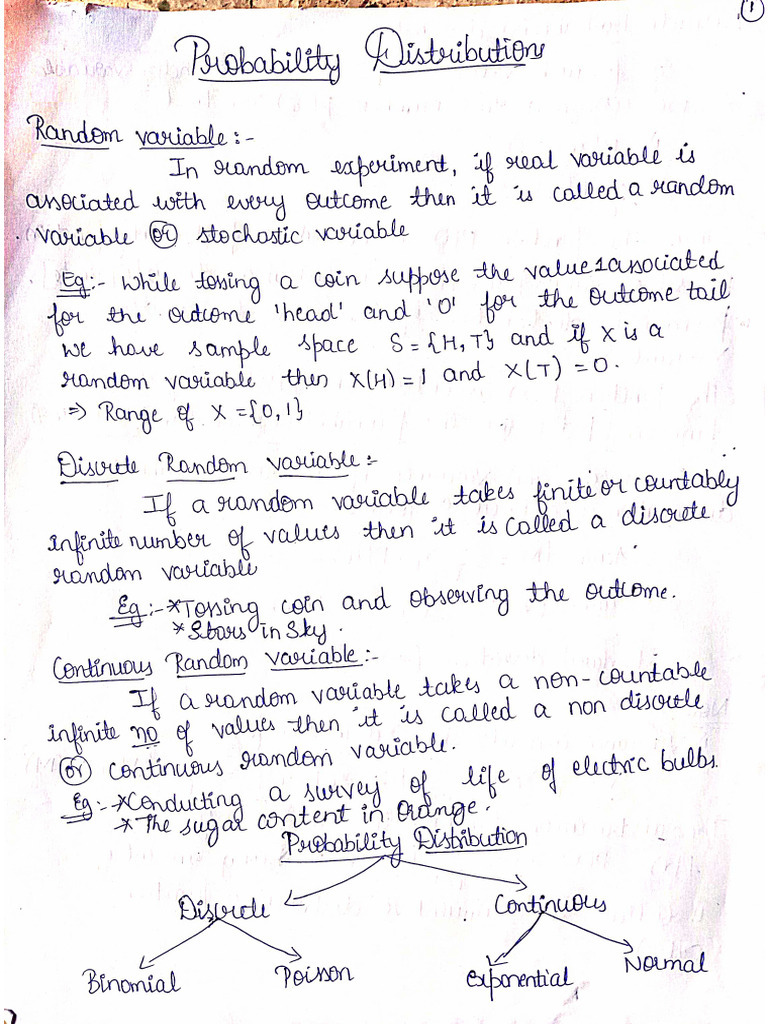 1
Probability Distributions
Random variable:-
In random experiment, if real variable is
associated with every outcome then it is called a random
variable or stochastic variable
Eg:- While tossing a coin suppose the value 1 associated
for the outcome 'head' and '0' for the outcome tail
we have sample space S = {H, T} and if X is a
random variable then X(H) = 1 and X(T) = 0.
⇒ Range of X = {0, 1}
Discrete Random variable:-
If a random variable takes finite or countably
infinite number of values then it is called a discrete
random variable
Eg:- * Tossing coin and observing the outcome.
* Stars in Sky.
Continuous Random variable:-
If a random variable takes a non-countable
infinite no of values then it is called a non discrete
or continuous random variable.
Eg:- * Conducting a survey of life of electric bulbs.
* The sugar content in orange.
Probability Distribution
Discrete Continuous
Binomial Poisson Exponential Normal